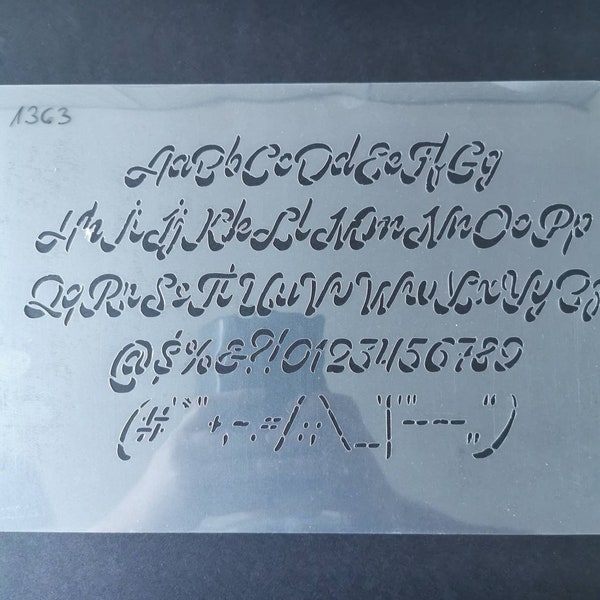 1363
AaBbCcDdEeFfGg
HhIiJjKkLlMmNnOoPp
QqRrSsTtUuVvWwXxYyZz
@$%&?!0123456789
(#'`"+,-.=/:;\_|'"–—„“)